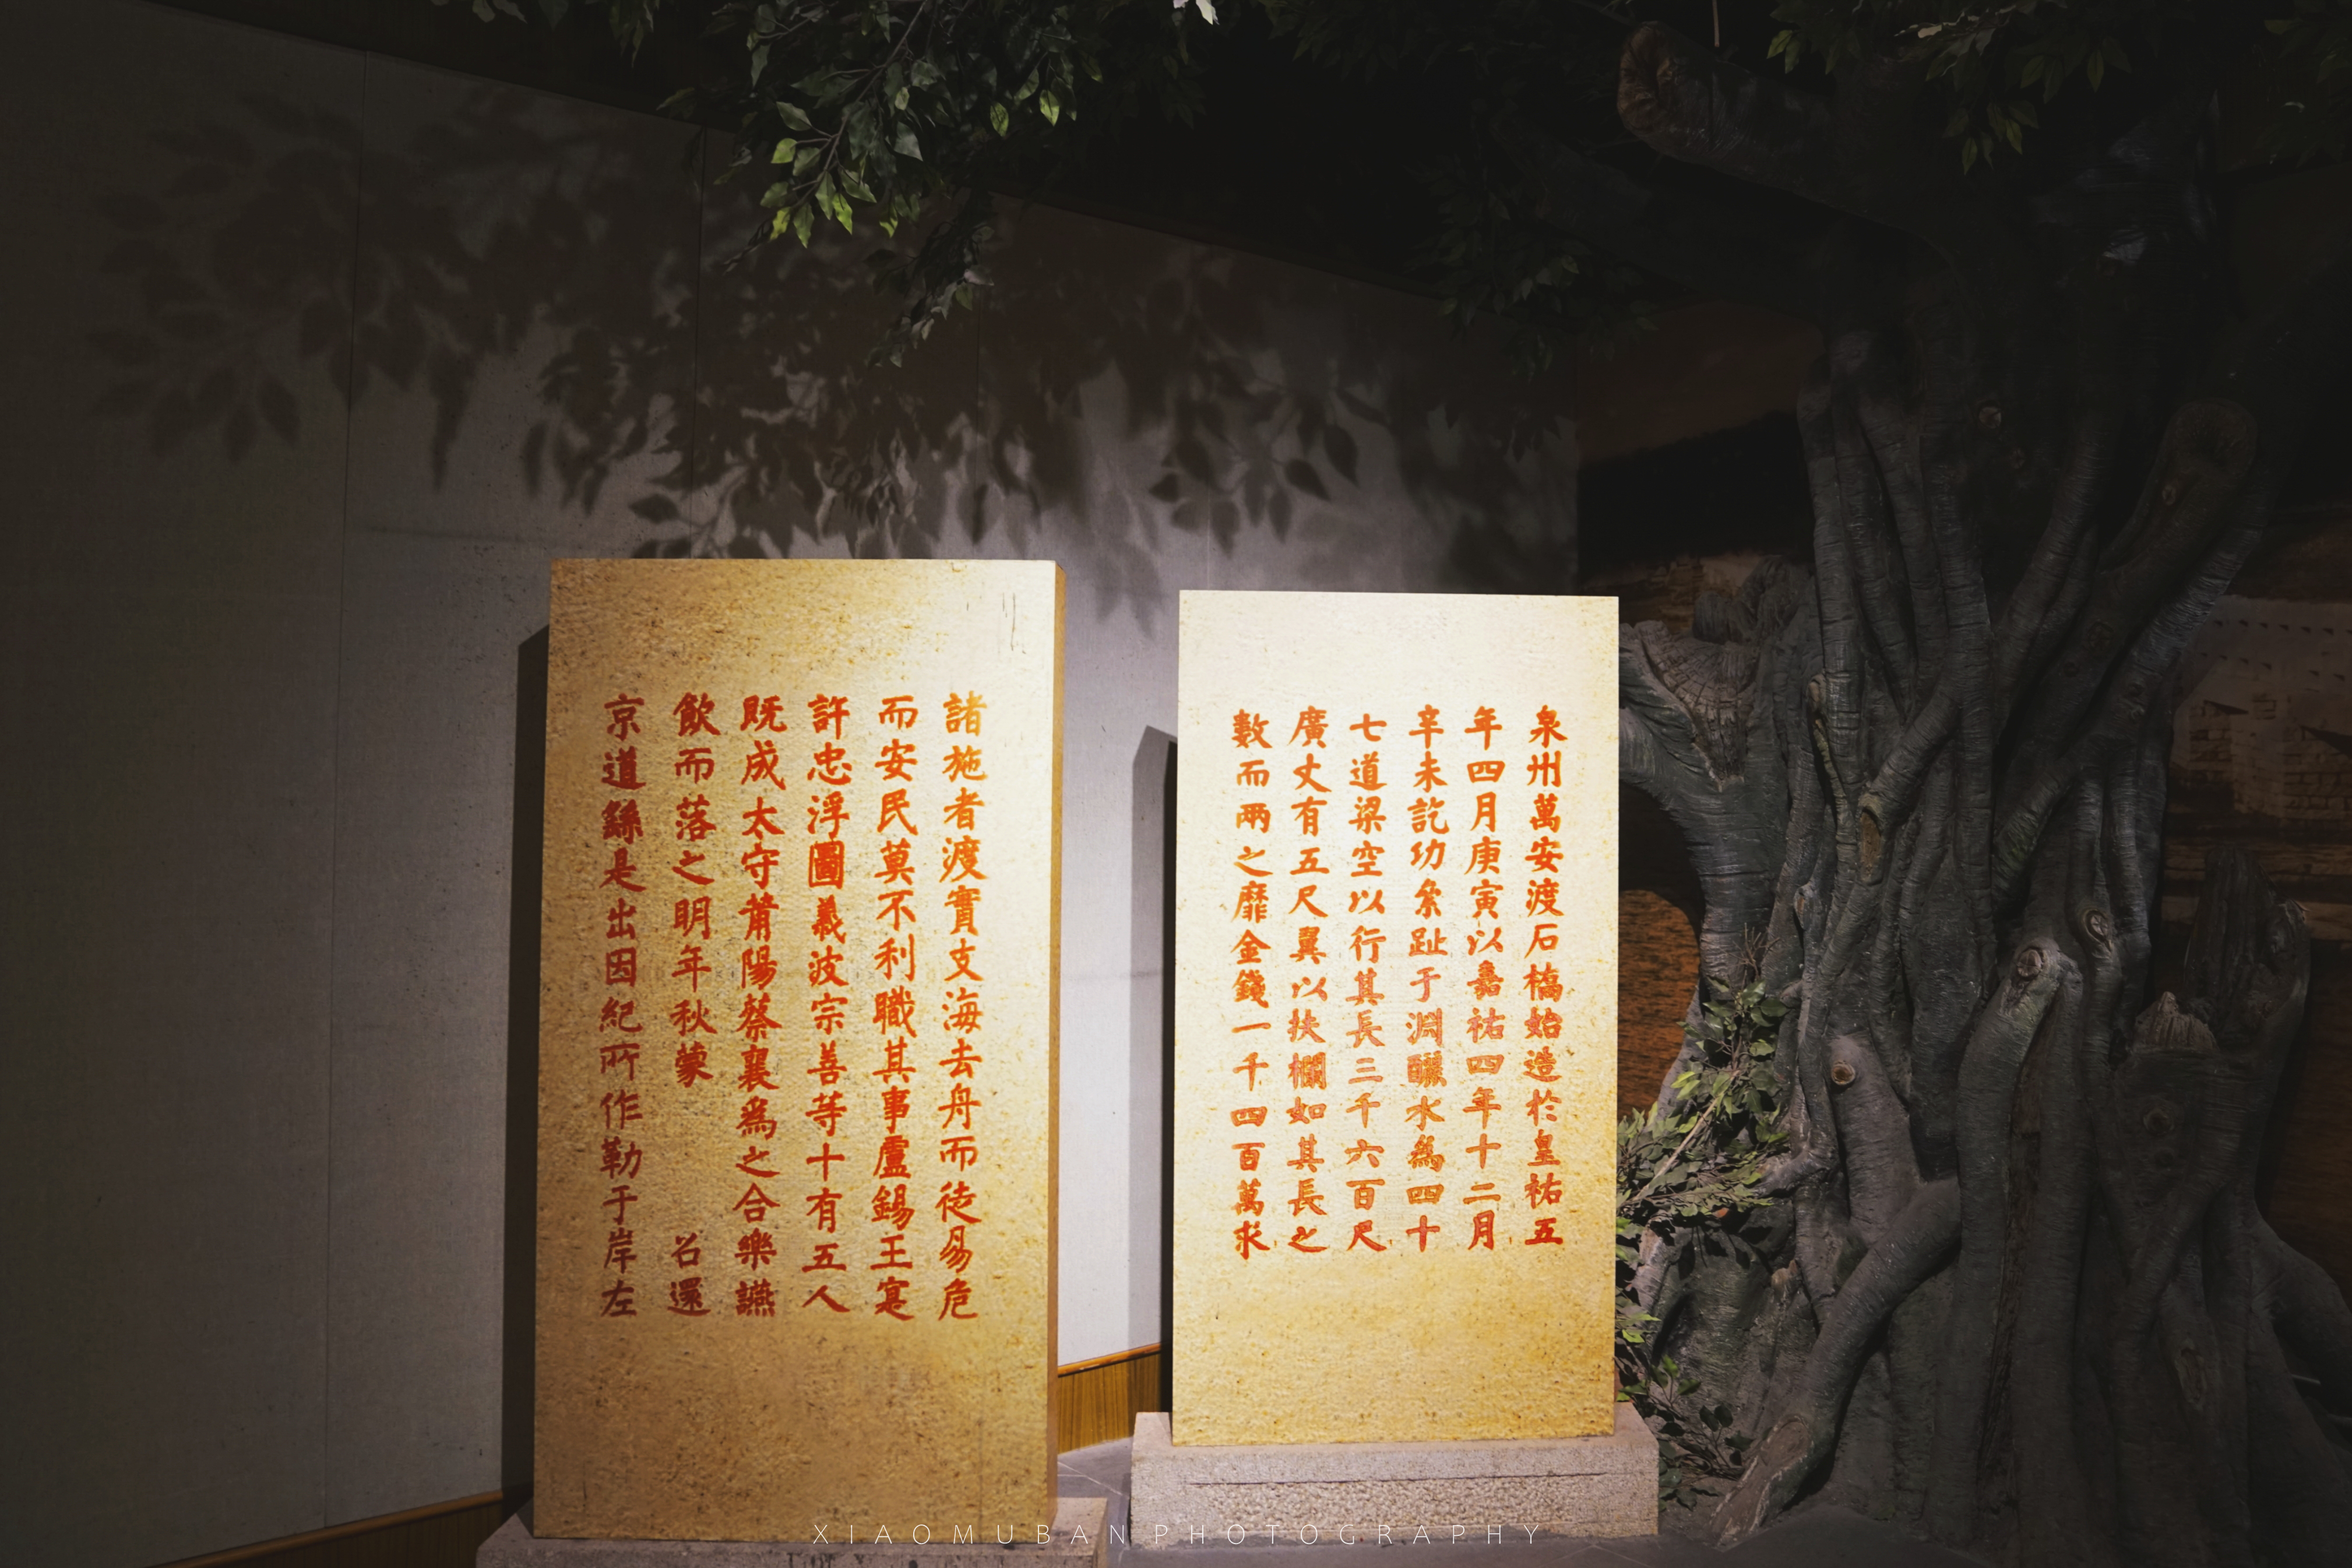 泉州萬安渡石橋始造於皇祐五
年四月庚寅以嘉祐四年十二月
辛未訖功絫趾于淵釃水為四十
七道梁空以行其長三千六百尺
廣丈有五尺翼以扶欄如其長之
數而兩之靡金錢一千四百萬求
諸施者渡實支海去舟而徒易危
而安民莫不利職其事盧錫王寔
許忠浮圖義波宗善等十有五人
既成太守莆陽蔡襄為之合樂讌
飲而落之明年秋蒙 召還
京道繇是出因紀所作勒于岸左
XIAOMUBAN PHOTOGRAPHY